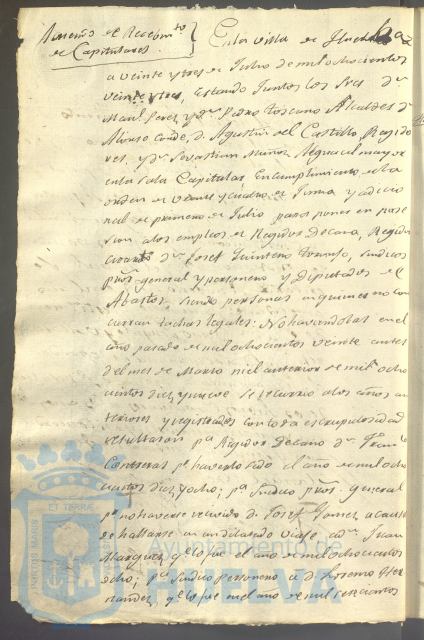 de Capitulares
En la villa de
a veinte y tres de Julio de mil ochocientos
veinte y tres, estando Juntos los Sres Dn
Manl Perez, y Dn Pedro Toscano Alcaldes Dn
Alonso Conde, Dn Agustin del Castillo, Regido
res, y Dn Sevastian Muñoz Alguacil mayor
en la Sala Capitular En cumplimiento de la
orden de veinte y cuatro de Junio y adicio
nal de primero de Julio para poner en pose
sion a los empleos de Regidor Decano, Regidor
cuarto Dn Josef Quintero, Sindicos
general y personero y Diputados del
Abastos, siendo personas en quienes no con
curran tachas legales: No haviendolas en el
año pasado de mil ochocientos veinte antes
del mes de Marzo ni el anterior de mil ocho
cientos diez y nueve se recurrio a los años an
teriores y registrados con toda escrupulosidad
resultaron pa Regidor Decano Dn Franco
Contreras pr haverlo sido el año de mil ocho
cientos diez y ocho; pa Sindico general
pr no haverse recivido Dn Josef Gomez a causa
de hallarse en un dilatado viaje a Dn Juan
Marquez qe lo fue el año de mil ochocientos
ocho; pa Sindico personero a Dn Lorenzo Her
nandez, qe lo fue en el año de mil setecientos
ET TERRAE
PORTUS MARIS
Ayuntamiento de
HUELVA